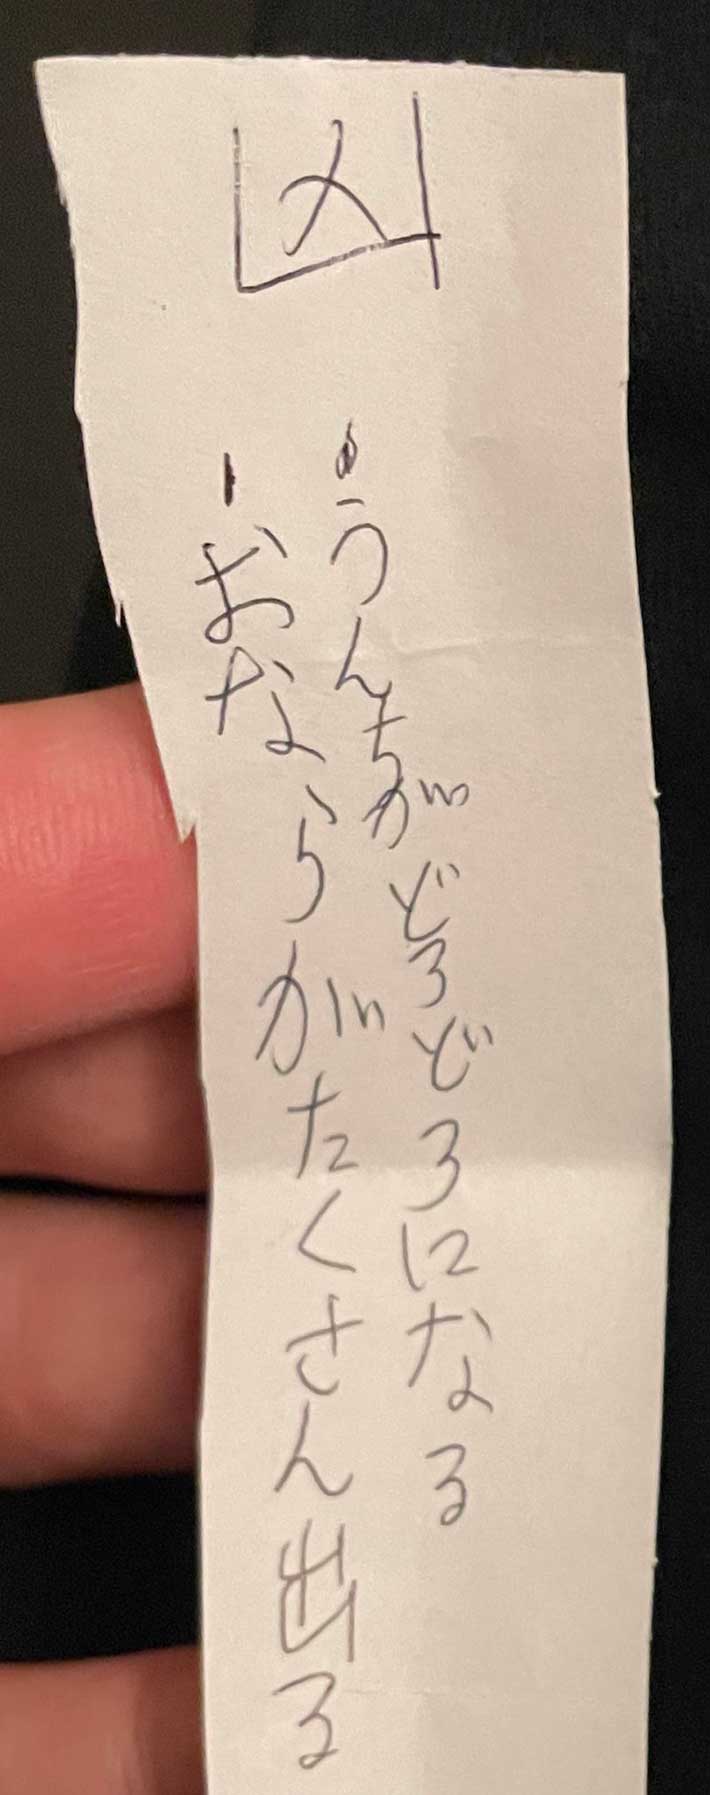 凶
・うんちがどろどろになる
・おならがたくさん出る